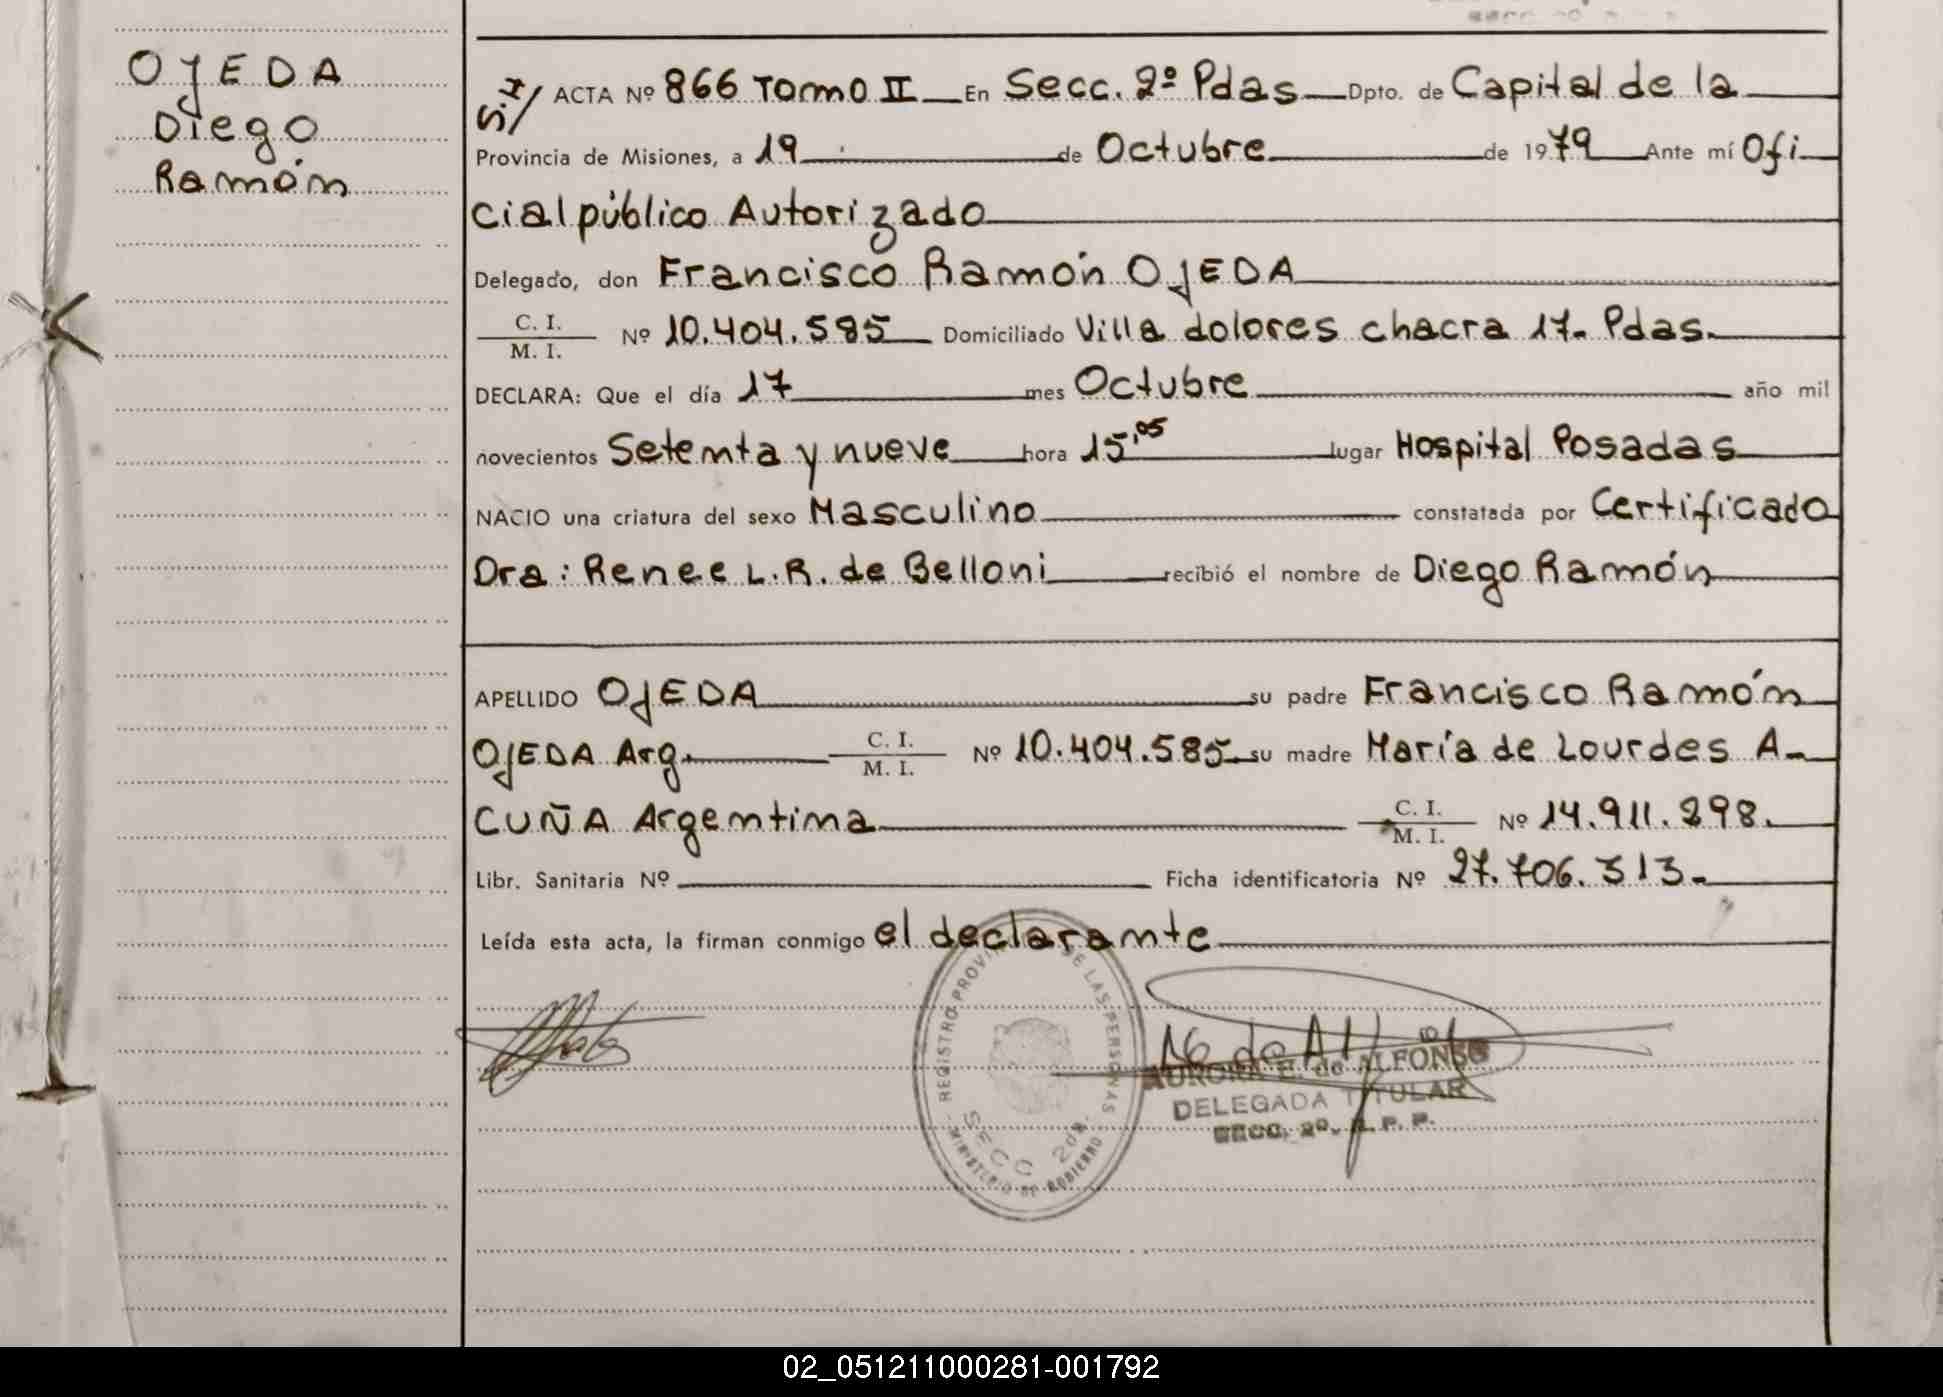 OJEDA
Diego
Ramón
S.I/ ACTA Nº 866 Tomo II En Secc. 2º Pdas Dpto. de Capital de la
Provincia de Misiones, a 19 de Octubre de 1979 Ante mí Ofi
cial público Autorizado
Delegado, don Francisco Ramón OJEDA
C. I.
M. I. Nº 10.404.585 Domiciliado Villa dolores chacra 17. Pdas.
DECLARA: Que el día 17 mes Octubre año mil
novecientos Setenta y nueve hora 15,05 lugar Hospital Posadas
NACIO una criatura del sexo Masculino constatada por Certificado
Dra: Renee L.R. de Belloni recibió el nombre de Diego Ramón
APELLIDO OJEDA su padre Francisco Ramón
OJEDA Arg. C. I. M. I. Nº 10.404.585 su madre María de Lourdes A-
CUÑA Argentina C. I. M. I. Nº 14.911.298.
Libr. Sanitaria Nº Ficha identificatoria Nº 27.706.313.
Leída esta acta, la firman conmigo el declarante
REGISTRO PROVINCIAL DE LAS PERSONAS
SECC 2da.
MINISTERIO DE GOBIERNO
AURORA E. de ALFONSO
DELEGADA TITULAR
SECC. 2º. R. P. P.
02_051211000281-001792